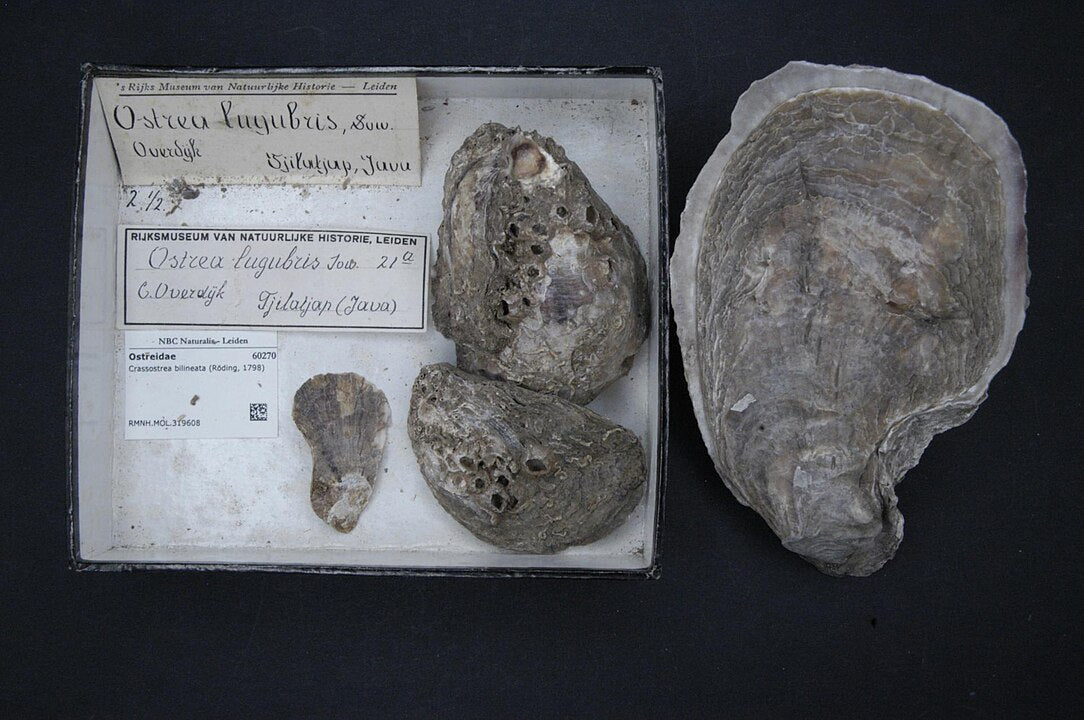 's Rijks Museum van Natuurlijke Historie — Leiden
Ostrea lugubris, Sow.
Overdyk
Tjilatjap, Java
2 1/2
RIJKSMUSEUM VAN NATUURLIJKE HISTORIE, LEIDEN
Ostrea lugubris Sow. 21a
C. Overdijk Tjilatjap (Java)
NBC Naturalis - Leiden
Ostreidae 60270
Crassostrea bilineata (Röding, 1798)
RMNH.MOL.319608